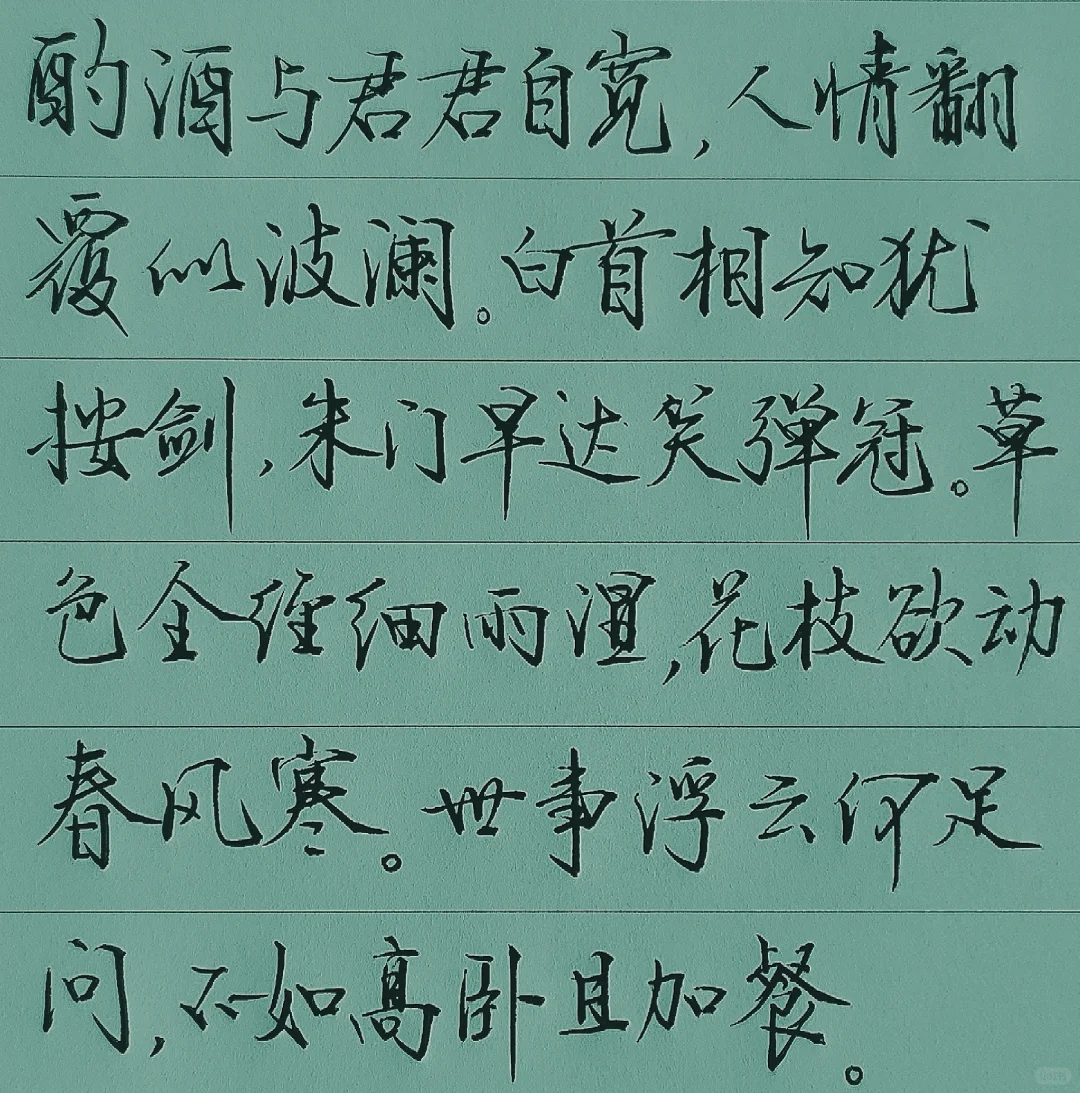 酌酒与君君自宽，人情翻
覆似波澜。白首相知犹
按剑，朱门早达笑弹冠。草
色全经细雨湿，花枝欲动
春风寒。世事浮云何足
问，不如高卧且加餐。